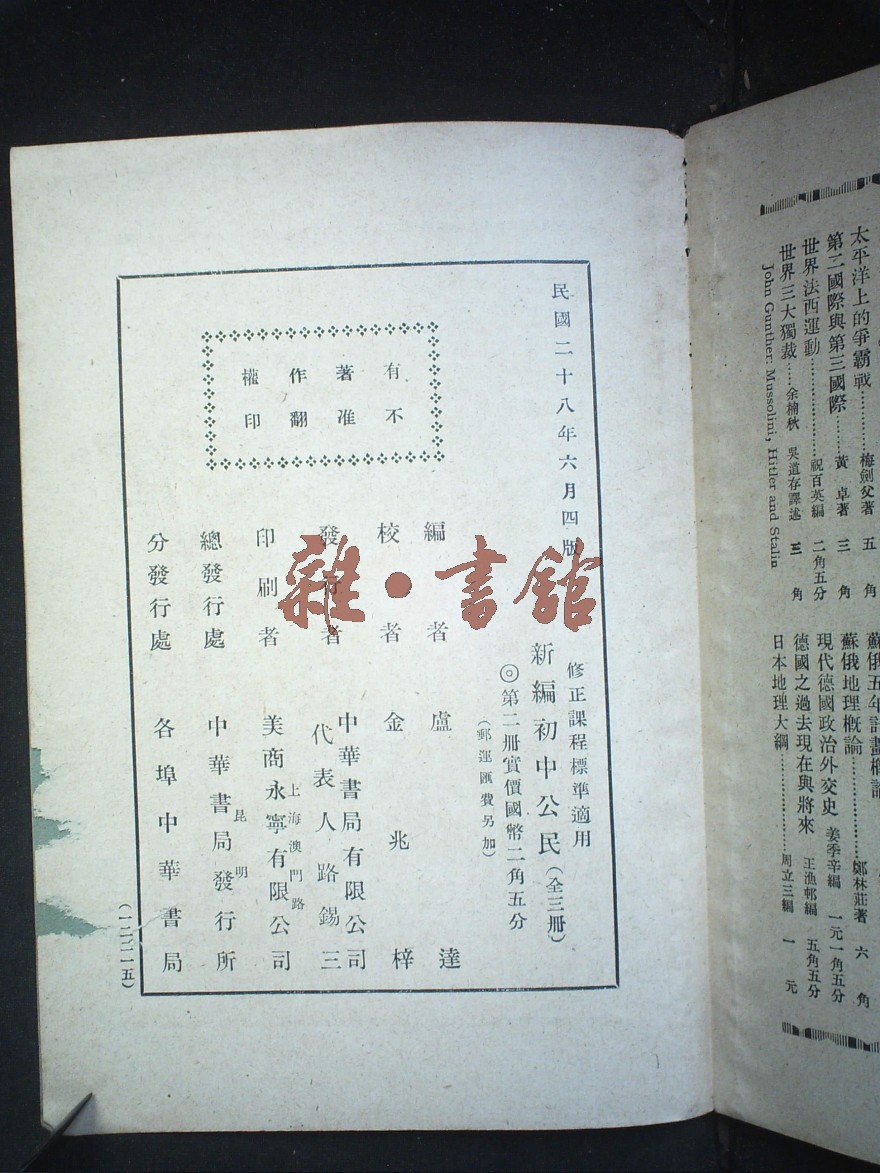 民國二十八年六月四版
修正課程標準適用
新編初中公民（全三册）
◎第二册實價國幣二角五分
（郵運匯費另加）
有著作權
不准翻印
編者 盧達
校者 金兆梓
發行者 中華書局有限公司
代表人路錫三
上海澳門路
印刷者 美商永寧有限公司
昆明
總發行處 中華書局發行所
分發行處 各埠中華書局
（一二二一五）
雜·書館
太平洋上的爭霸戰……梅劍父著 五角
第二國際與第三國際……黃卓著 三角
世界法西運動……祝百英編 二角五分
世界三大獨裁……余楠秋 吳道存譯述 三角
John Gunther: Mussolini, Hitler and Stalin
蘇俄五年計畫概論
蘇俄地理概論……鄭林莊著 六角
現代德國政治外交史 姜季辛編 一元一角五分
德國之過去現在與將來 王漁邨編 五角五分
日本地理大綱……周立三編 一元